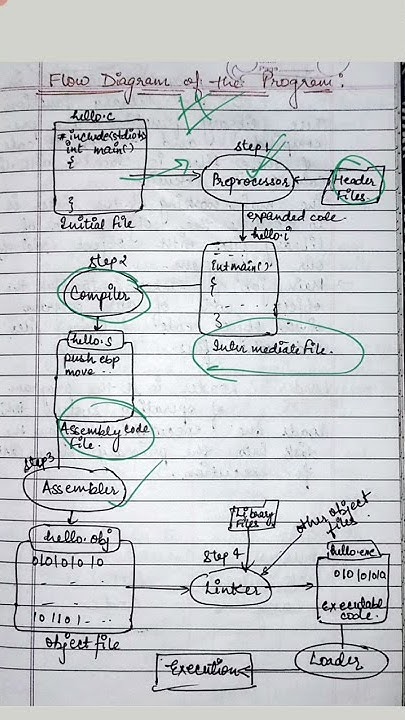 Flow Diagram of the Program:
hello.c
#include(stdio.h)
int main()
{
}
Initial file
step 1
Preprocessor
Header
Files.
expanded code
hello.i
int main()
{
}
Inter mediate file.
step 2
Compiler
hello.s
push ebp
move ..
Assembly code
file.
step 3
Assembler
hello.obj
01010101 0
101101...
object file
Library
files
other object
files
step 4
Linker
hello.exe
010101010
executable
code.
Loader
Execution